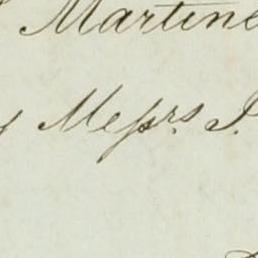 Martine
Messrs. J.